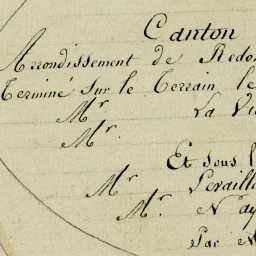 Canton
Arrondissement de Redon
Terminé sur le Terrain le
Mr. La Vi
Mr.
Et sous l
Mr. Levaill
Mr. Nay
Par